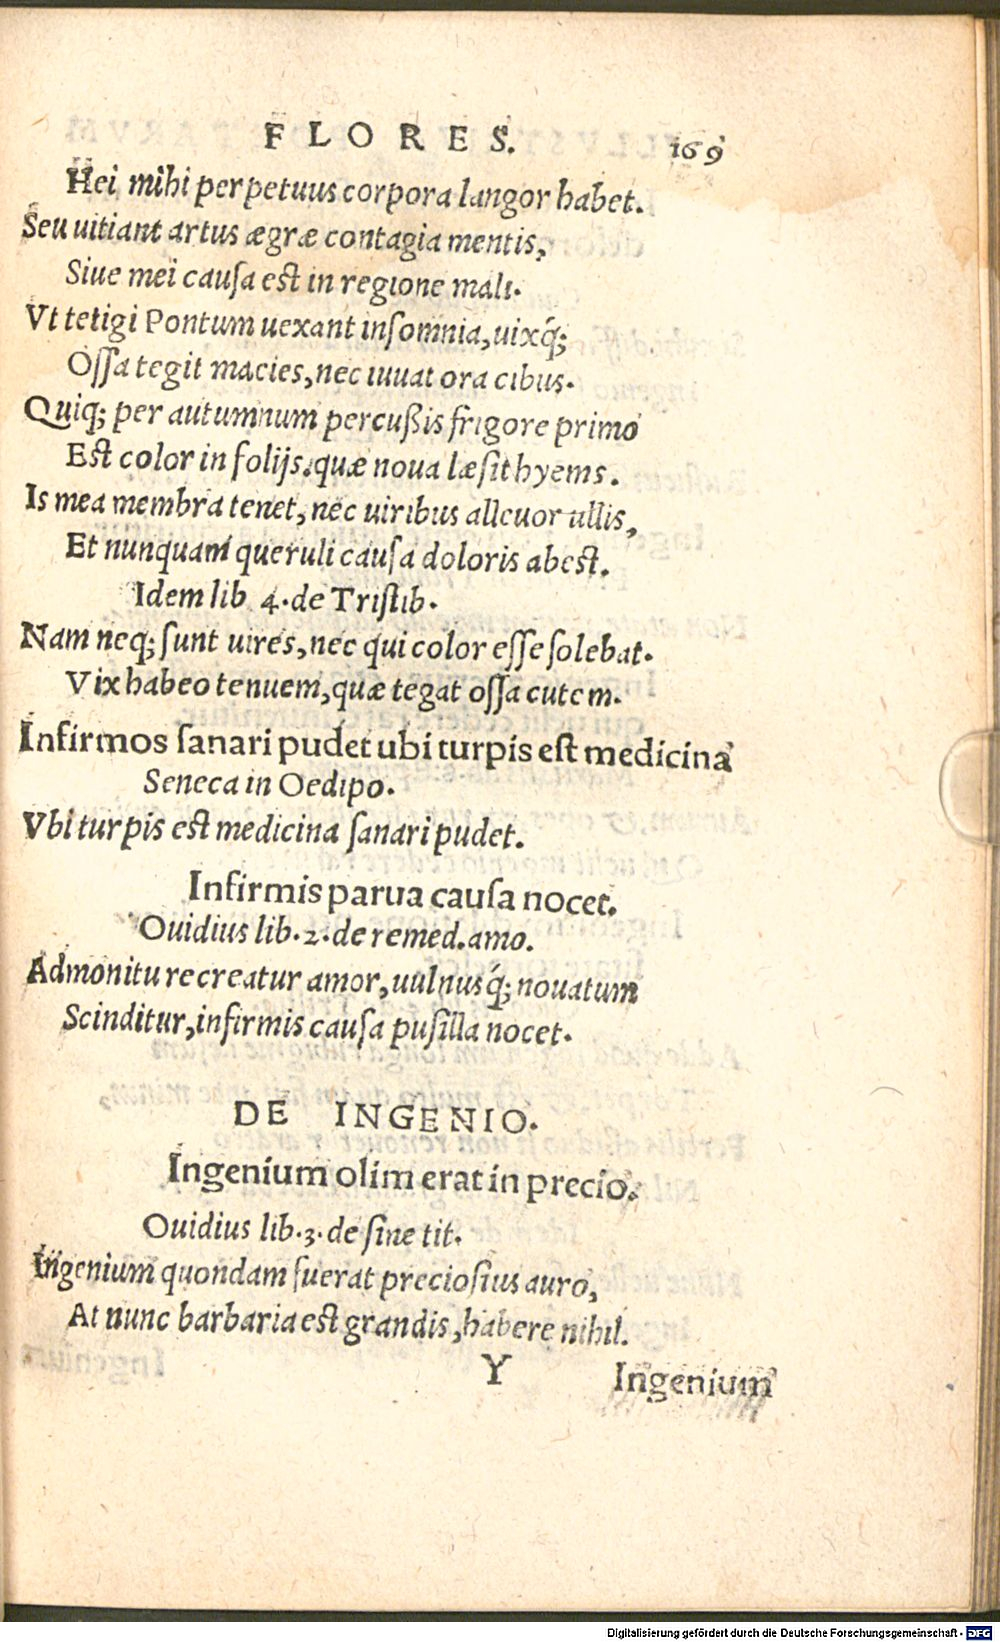 FLORES. 169
Hei mihi perpetuus corpora langor habet.
Seu uitiant artus ægræ contagia mentis,
Siue mei causa est in regione mali.
Vt tetigi Pontum uexant insomnia, uixq́;
Ossa tegit macies, nec iuuat ora cibus.
Quiq; per autumnum percußis frigore primo
Est color in folijs, quæ noua læsit hyems.
Is mea membra tenet, nec uiribus alleuor ullis,
Et nunquam queruli causa doloris abest.
Idem lib 4. de Tristib.
Nam neq; sunt uires, nec qui color esse solebat.
Vix habeo tenuem, quæ tegat ossa cutem.
Infirmos sanari pudet ubi turpis est medicina
Seneca in Oedipo.
Vbi turpis est medicina sanari pudet.
Infirmis parua causa nocet.
Ouidius lib. 2. de remed. amo.
Admonitu recreatur amor, uulnusq́; nouatum
Scinditur, infirmis causa pusilla nocet.
DE INGENIO.
Ingenium olim erat in precio.
Ouidius lib. 3. de sine tit.
Ingenium quondam fuerat preciosius auro,
At nunc barbaria est grandis, habere nihil.
Y Ingenium
Digitalisierung gefördert durch die Deutsche Forschungsgemeinschaft - DFG